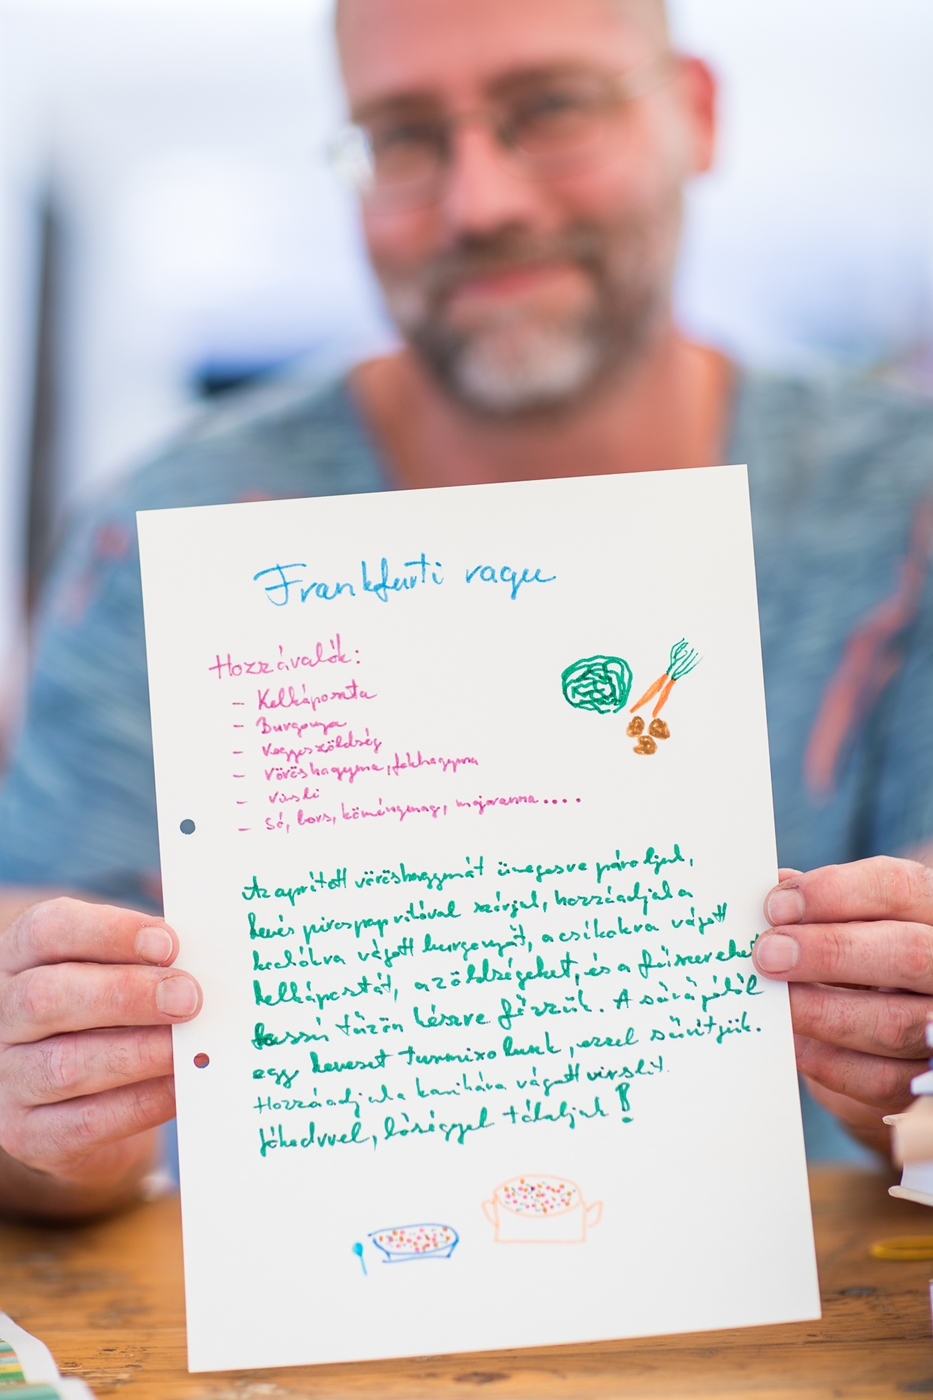 Frankfurti ragu
Hozzávalók:
- Kelkáposzta
- Burgonya
- Vegyeszöldség
- Vöröshagyma, fokhagyma
- Virsli
- Só, bors, köménymag, majoranna....
Az aprított vöröshagymát üvegesre pároljuk,
kevés pirospaprikával szórjuk, hozzáadjuk a
kockákra vágott burgonyát, a csíkokra vágott
kelkáposztát, a zöldségeket, és a fűszereket
lassú tűzön készre főzzük. A sűrűjéből
egy keveset turmixolunk, ezzel sűrítjük.
Hozzáadjuk a karikára vágott virslit.
Jókedvvel, bőséggel tálaljuk!